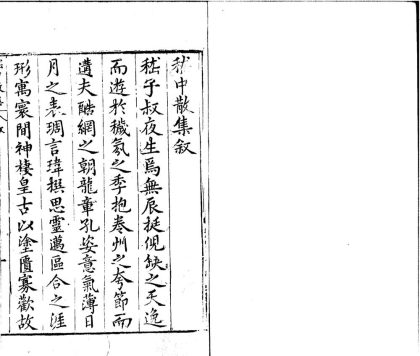 嵇中散集叙
嵇子叔夜生焉無辰挺俔缺之天逸
而遊於穢氛之季抱卷州之夸節而
遘夫酷網之朝龍章孔姿意氣薄日
月之表琱言瑋撰思靈邁區合之涯
形寓寰間神棲皇古以塗匱寡歡故